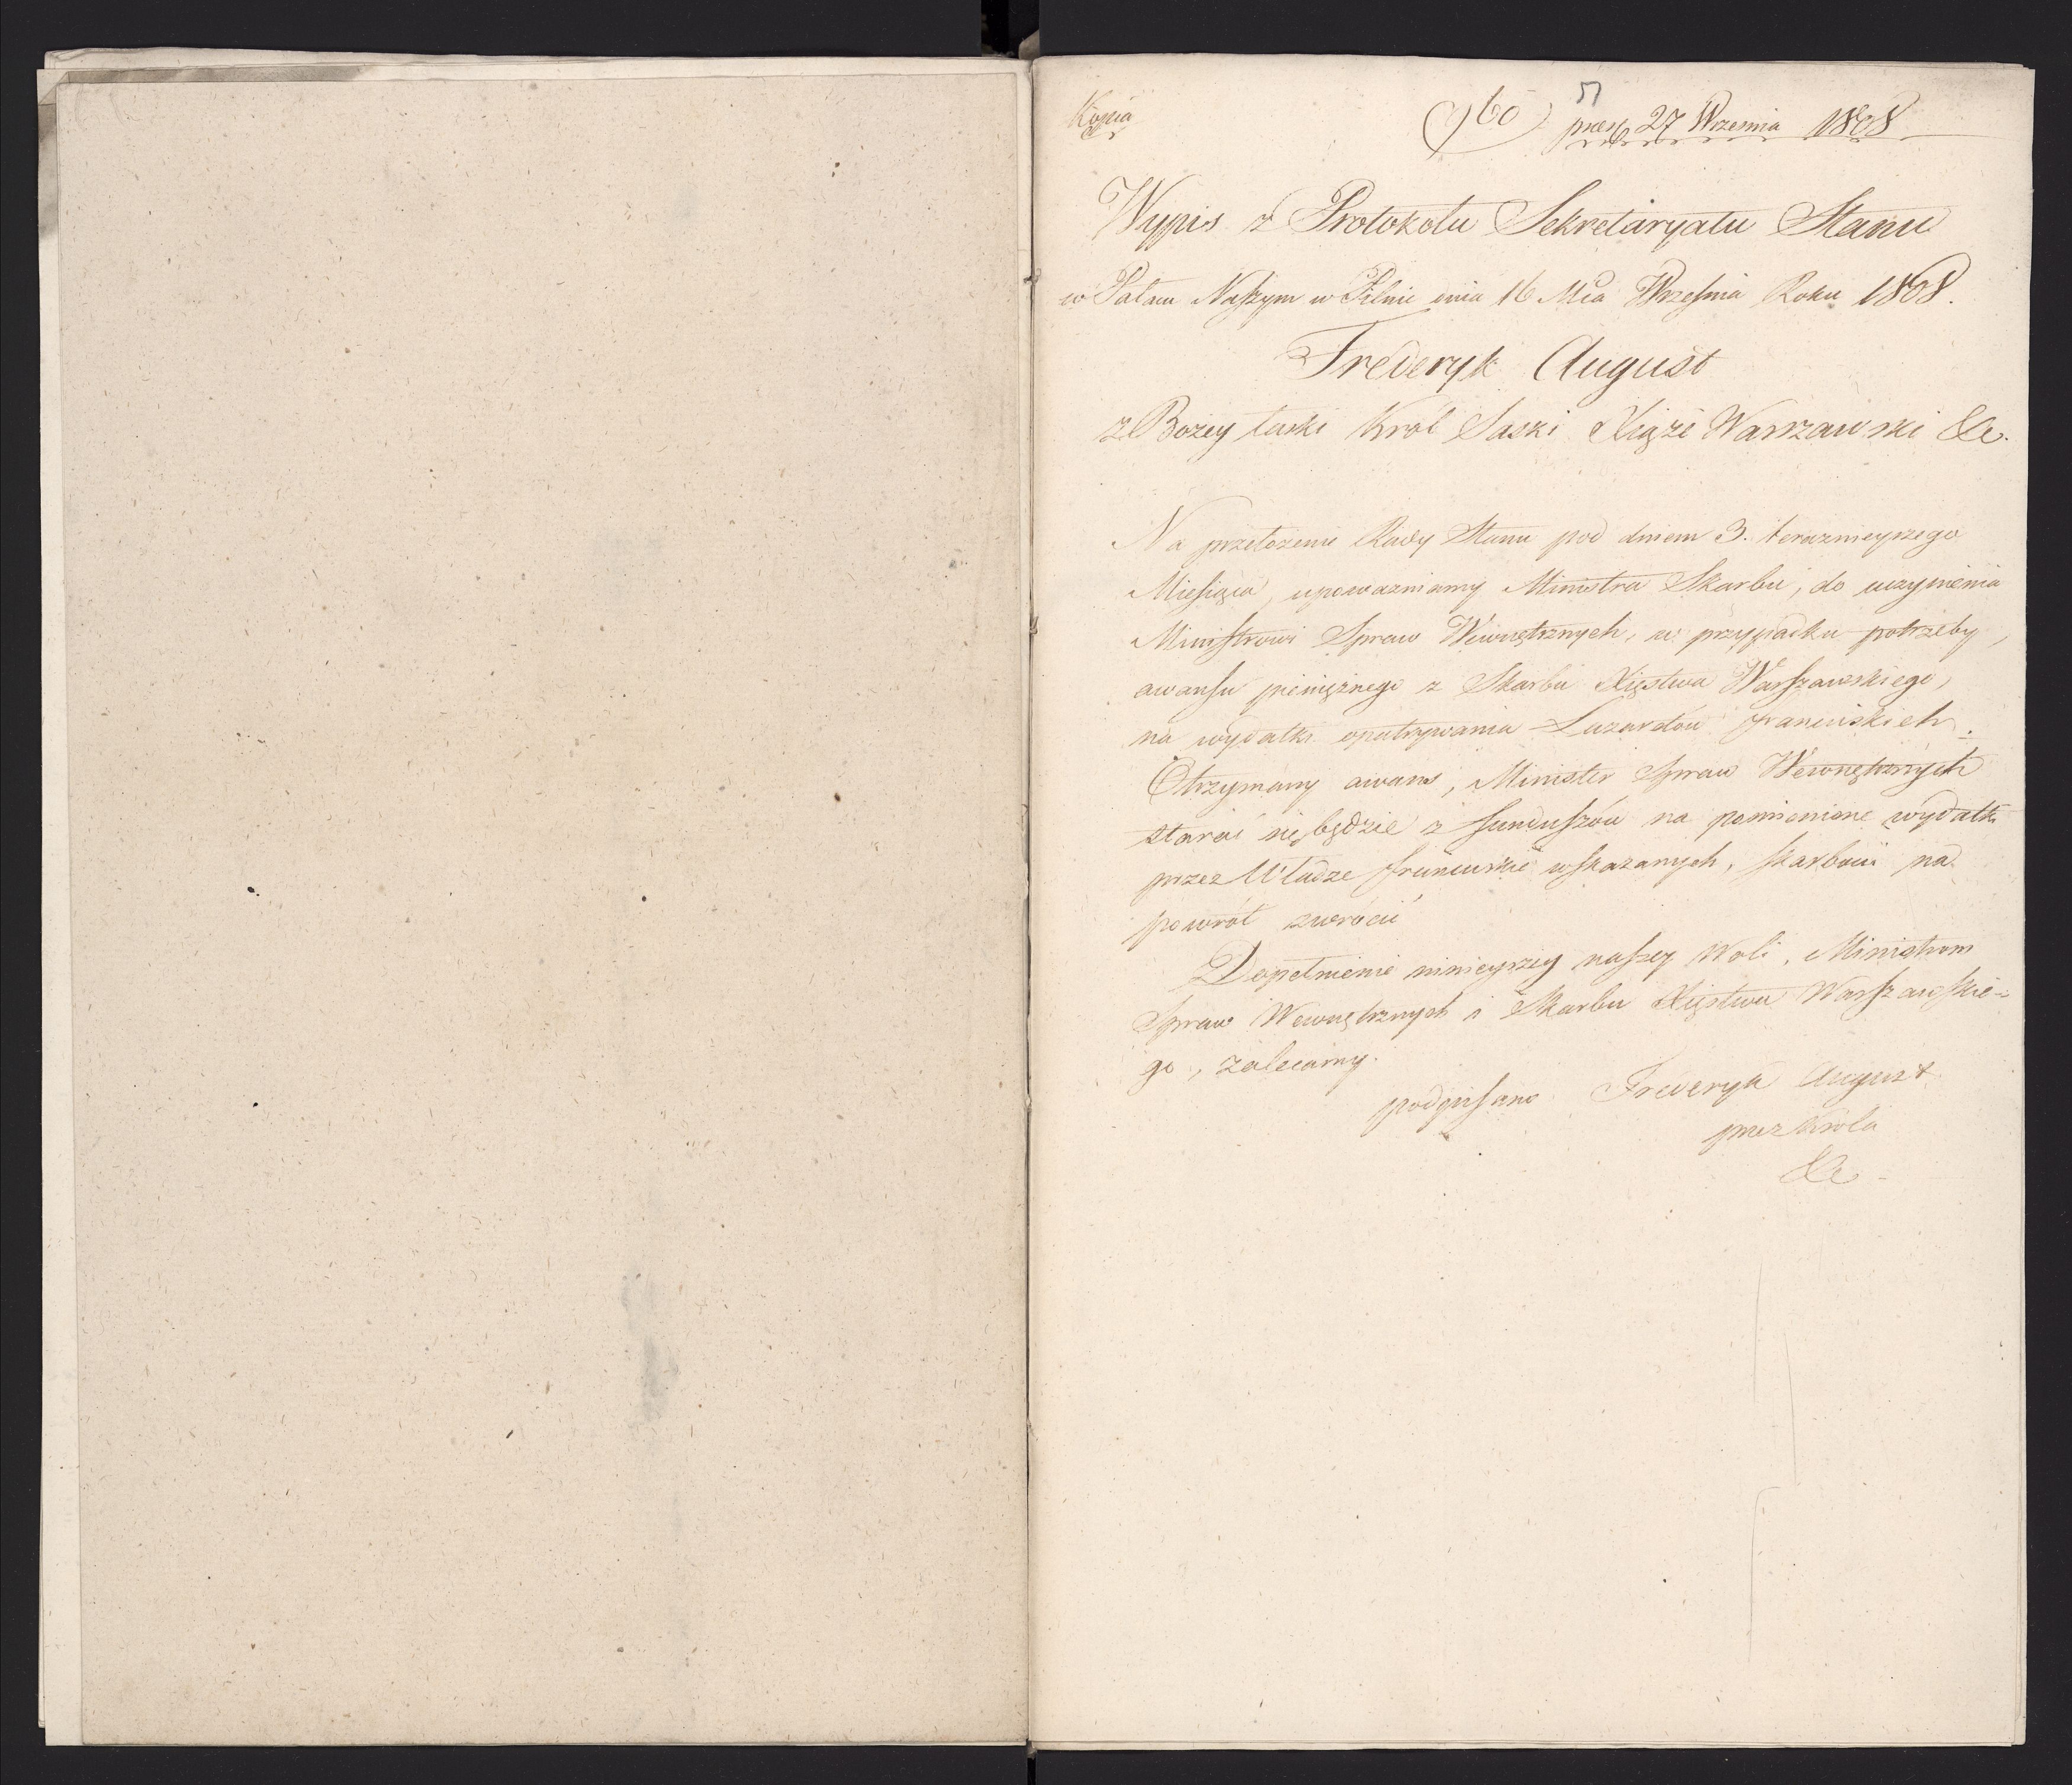 Kopia
960 51
pres. 27 Wrzesnia 1808
Wypis z Protokołu Sekretaryatu Stanu
w Pałacu Naszym w Pilnic dnia 16 Mca Wrzesnia Roku 1808.
Frederyk August
z Bożey łaski Król Saski Xiąże Warszawski &c.
Na przełożenie Rady Stanu pod dniem 3. teraznieyszego
Miesiąca, upowazniamy Ministra Skarbu, do uczynienia
Ministrowi Spraw Wewnętrznych, w przypadku potrzeby,
awansu pieniężnego z Skarbu Xięstwa Warszawskiego,
na wydatki opatrzywania Lazaretów francuskich.
Otrzymany awans, Minister Spraw Wewnętrznych
starać się będzie z funduszów na pomienione wydatki
przez Władze francuskie wskazanych, skarbowi na
powrót zwrócić
Dopełnienie ninieyszey naszey Woli, Ministrom
Spraw Wewnętrznych i Skarbu Xięstwa Warszawskie-
go, zalecamy.
podpisano Frederyk August
przez Króla
&c